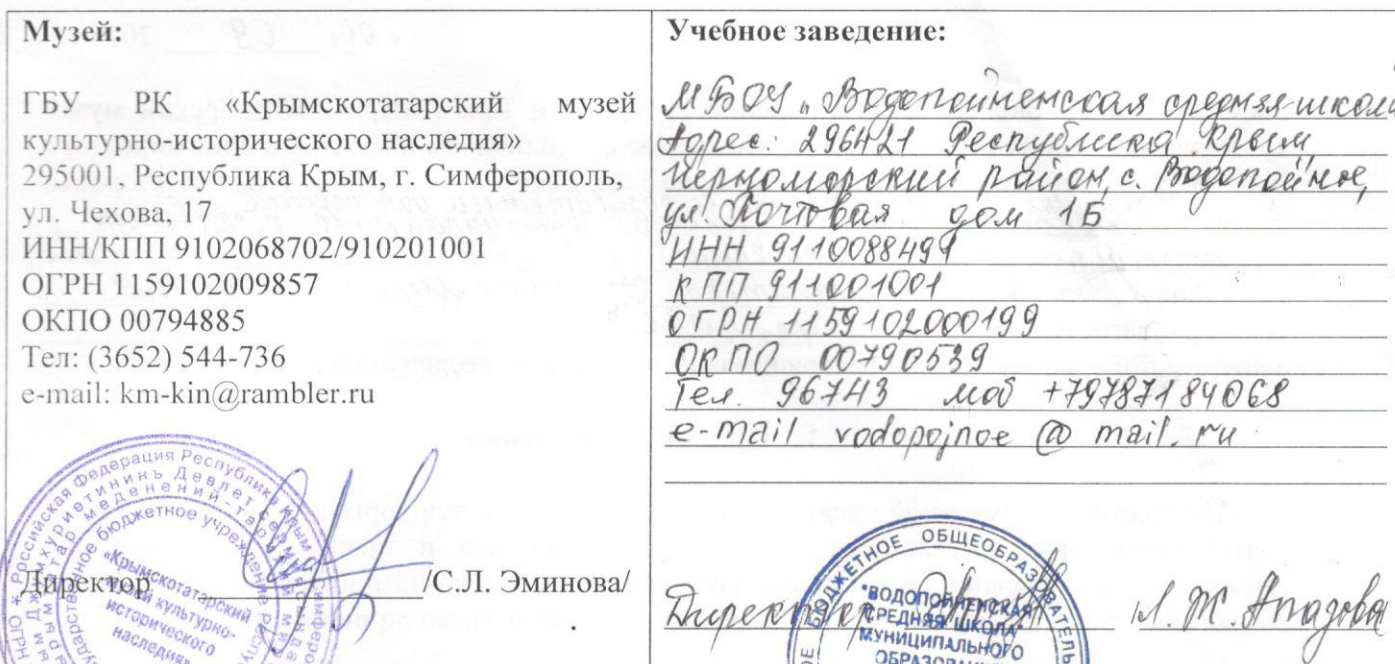 Музей:
ГБУ РК «Крымскотатарский музей
культурно-исторического наследия»
295001, Республика Крым, г. Симферополь,
ул. Чехова, 17
ИНН/КПП 9102068702/910201001
ОГРН 1159102009857
ОКПО 00794885
Тел: (3652) 544-736
e-mail: km-kin@rambler.ru
Директор /С.Л. Эминова/
Российская Федерация Республика Крым
бюджетное учреждение
«Крымскотатарский
музей культурно-
исторического
наследия»
Учебное заведение:
МБОУ „Водопойненская средняя школа
Адрес: 296421 Республика Крым
Черноморский район, с. Водопойное,
ул. Почтовая дом 1Б
ИНН 9110088499
КПП 911001001
ОГРН 1159102000199
ОКПО 00790539
Тел. 96743 моб +79787184068
e-mail vodopojnoe @ mail. ru
Директор Л. Ж. Апазова
БЮДЖЕТНОЕ ОБЩЕОБРАЗОВАТЕЛЬ
"ВОДОПОЙНЕНСКАЯ
СРЕДНЯЯ ШКОЛА"
МУНИЦИПАЛЬНОГО